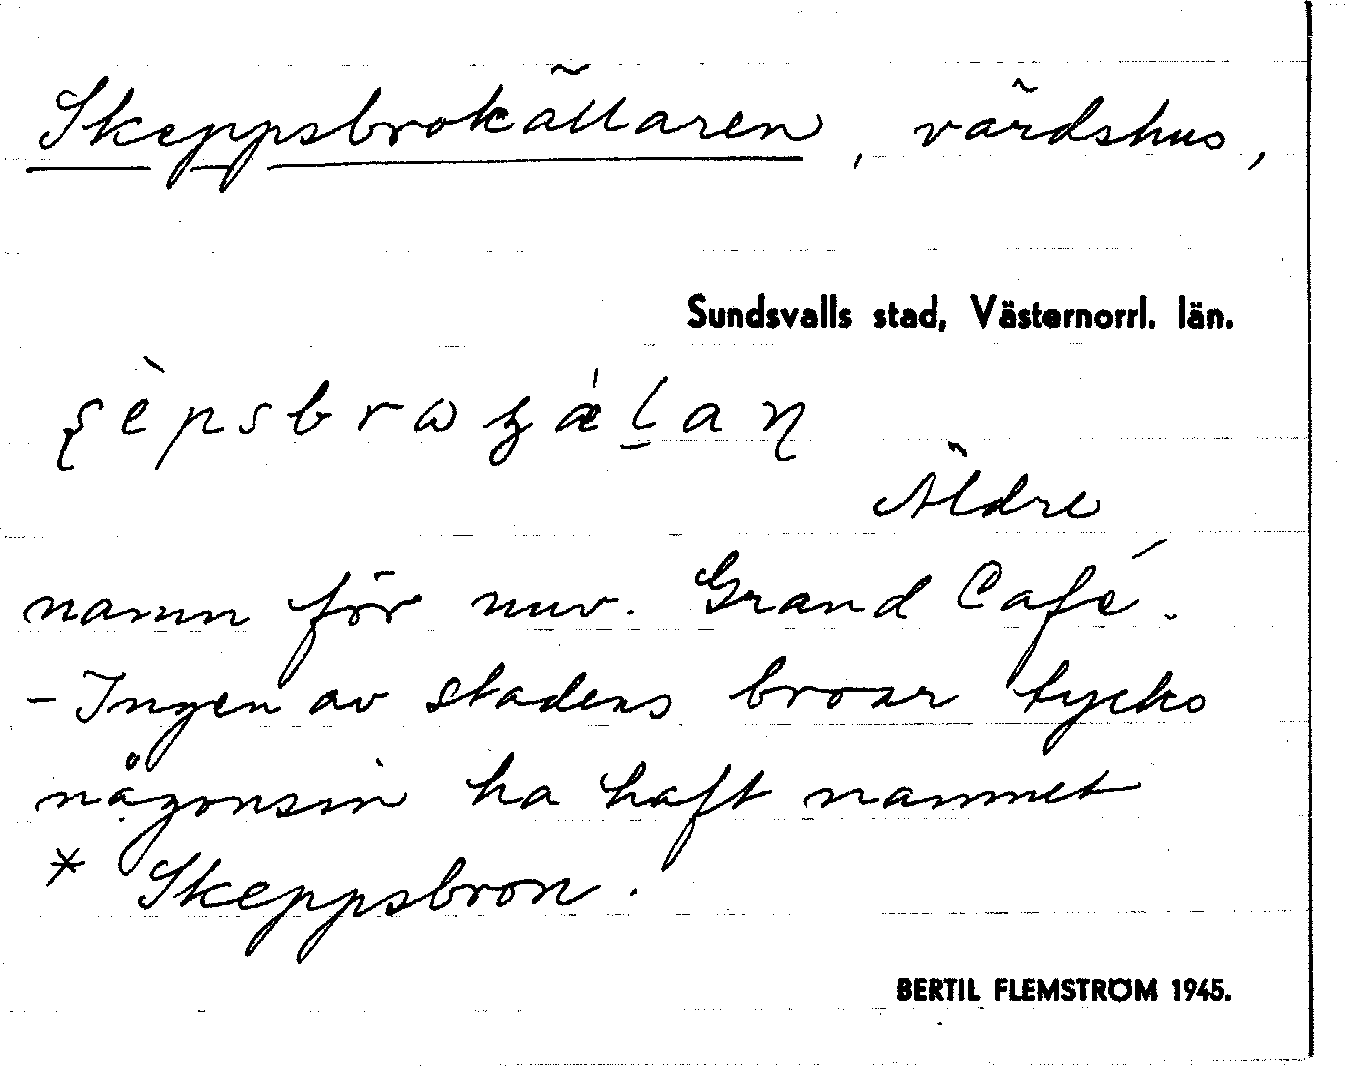 Skeppsbrokällaren, värdshus,
Sundsvalls stad, Västernorrl. län.
Äldre
namn för nuv. Grand Café.
- Ingen av stadens broar tycks
någonsin ha haft namnet
* Skeppsbron.
BERTIL FLEMSTRÖM 1945.